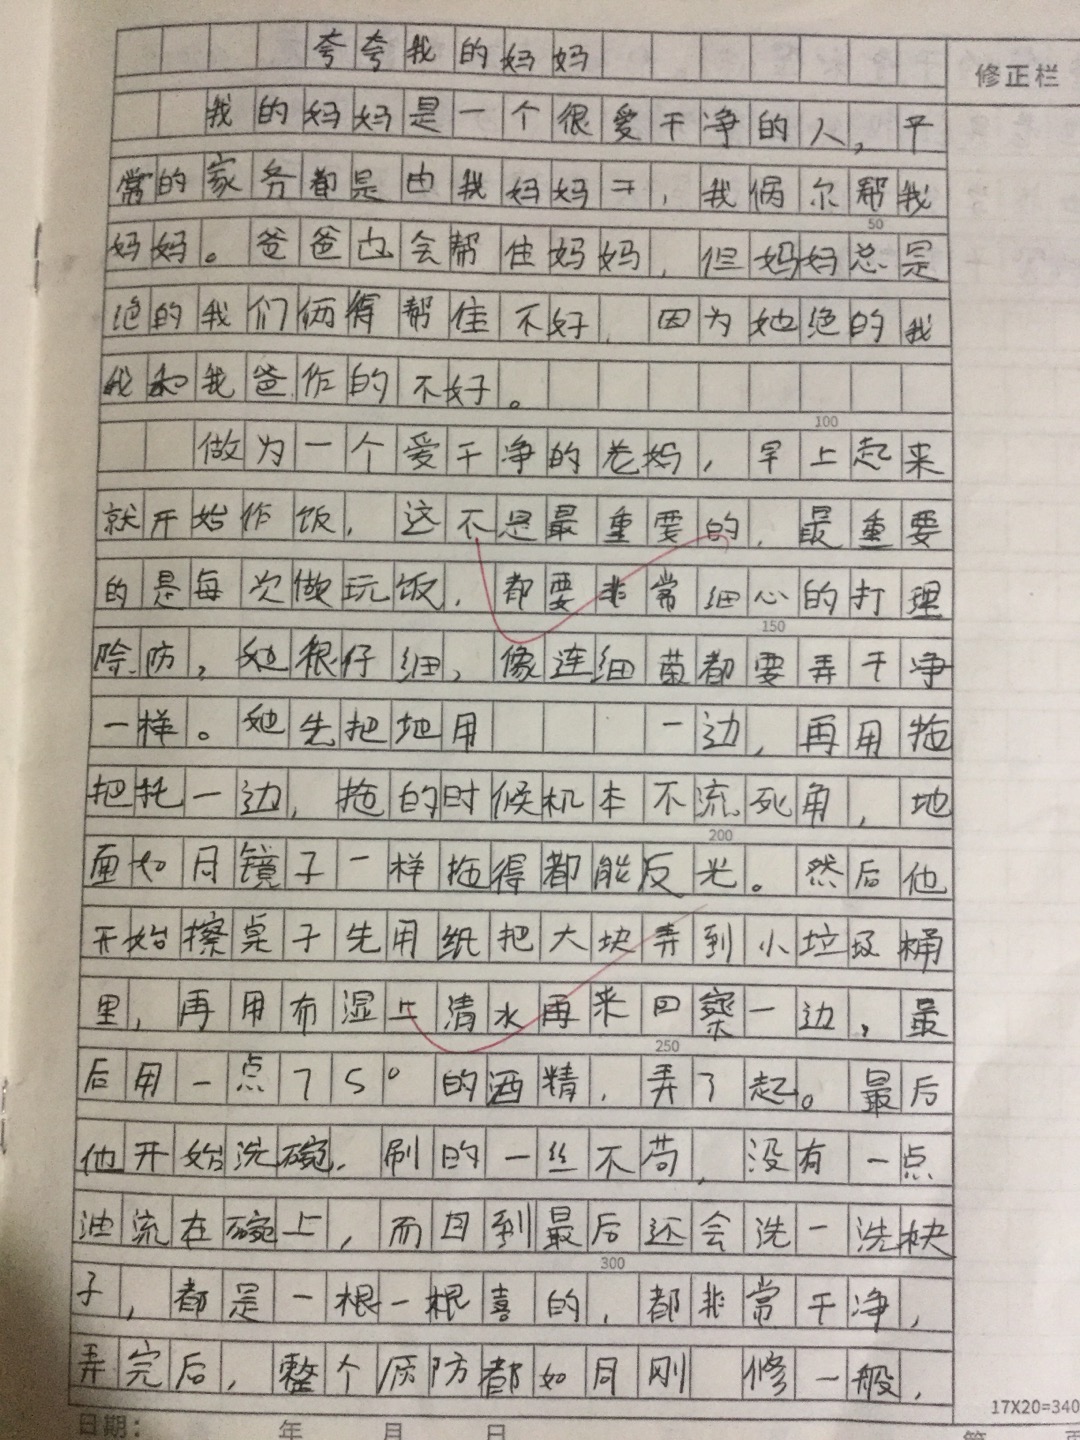 夸夸我的妈妈
修正栏
我的妈妈是一个很爱干净的人，平
常的家务都是由我妈妈干，我偶尔帮我
50
妈妈。爸爸也会帮住妈妈，但妈妈总是
绝的我们俩得帮住不好，因为她绝的我
和我爸作的不好。
100
做为一个爱干净的老妈，早上起来
就开始作饭，这不是最重要的，最重要
的是每次做玩饭，都要非常细心的打理
150
除防，她很仔细，像连细菌都要弄干净
一样。她先把地用 一边，再用拖
把托一边，拖的时候机本不流死角，地
200
面如同镜子一样拖得都能反光。然后他
开始擦桌子先用纸把大块弄到小垃圾桶
里，再用布湿上清水再来回察一边，最
250
后用一点75°的酒精，弄了起。最后
他开始洗碗，刷的一丝不苟，没有一点
油流在碗上，而且到最后还会洗一洗袂
300
子，都是一根一根喜的，都非常干净，
弄完后，整个厉防都如同刚 修一般，
17X20=340
日期： 年 月 日